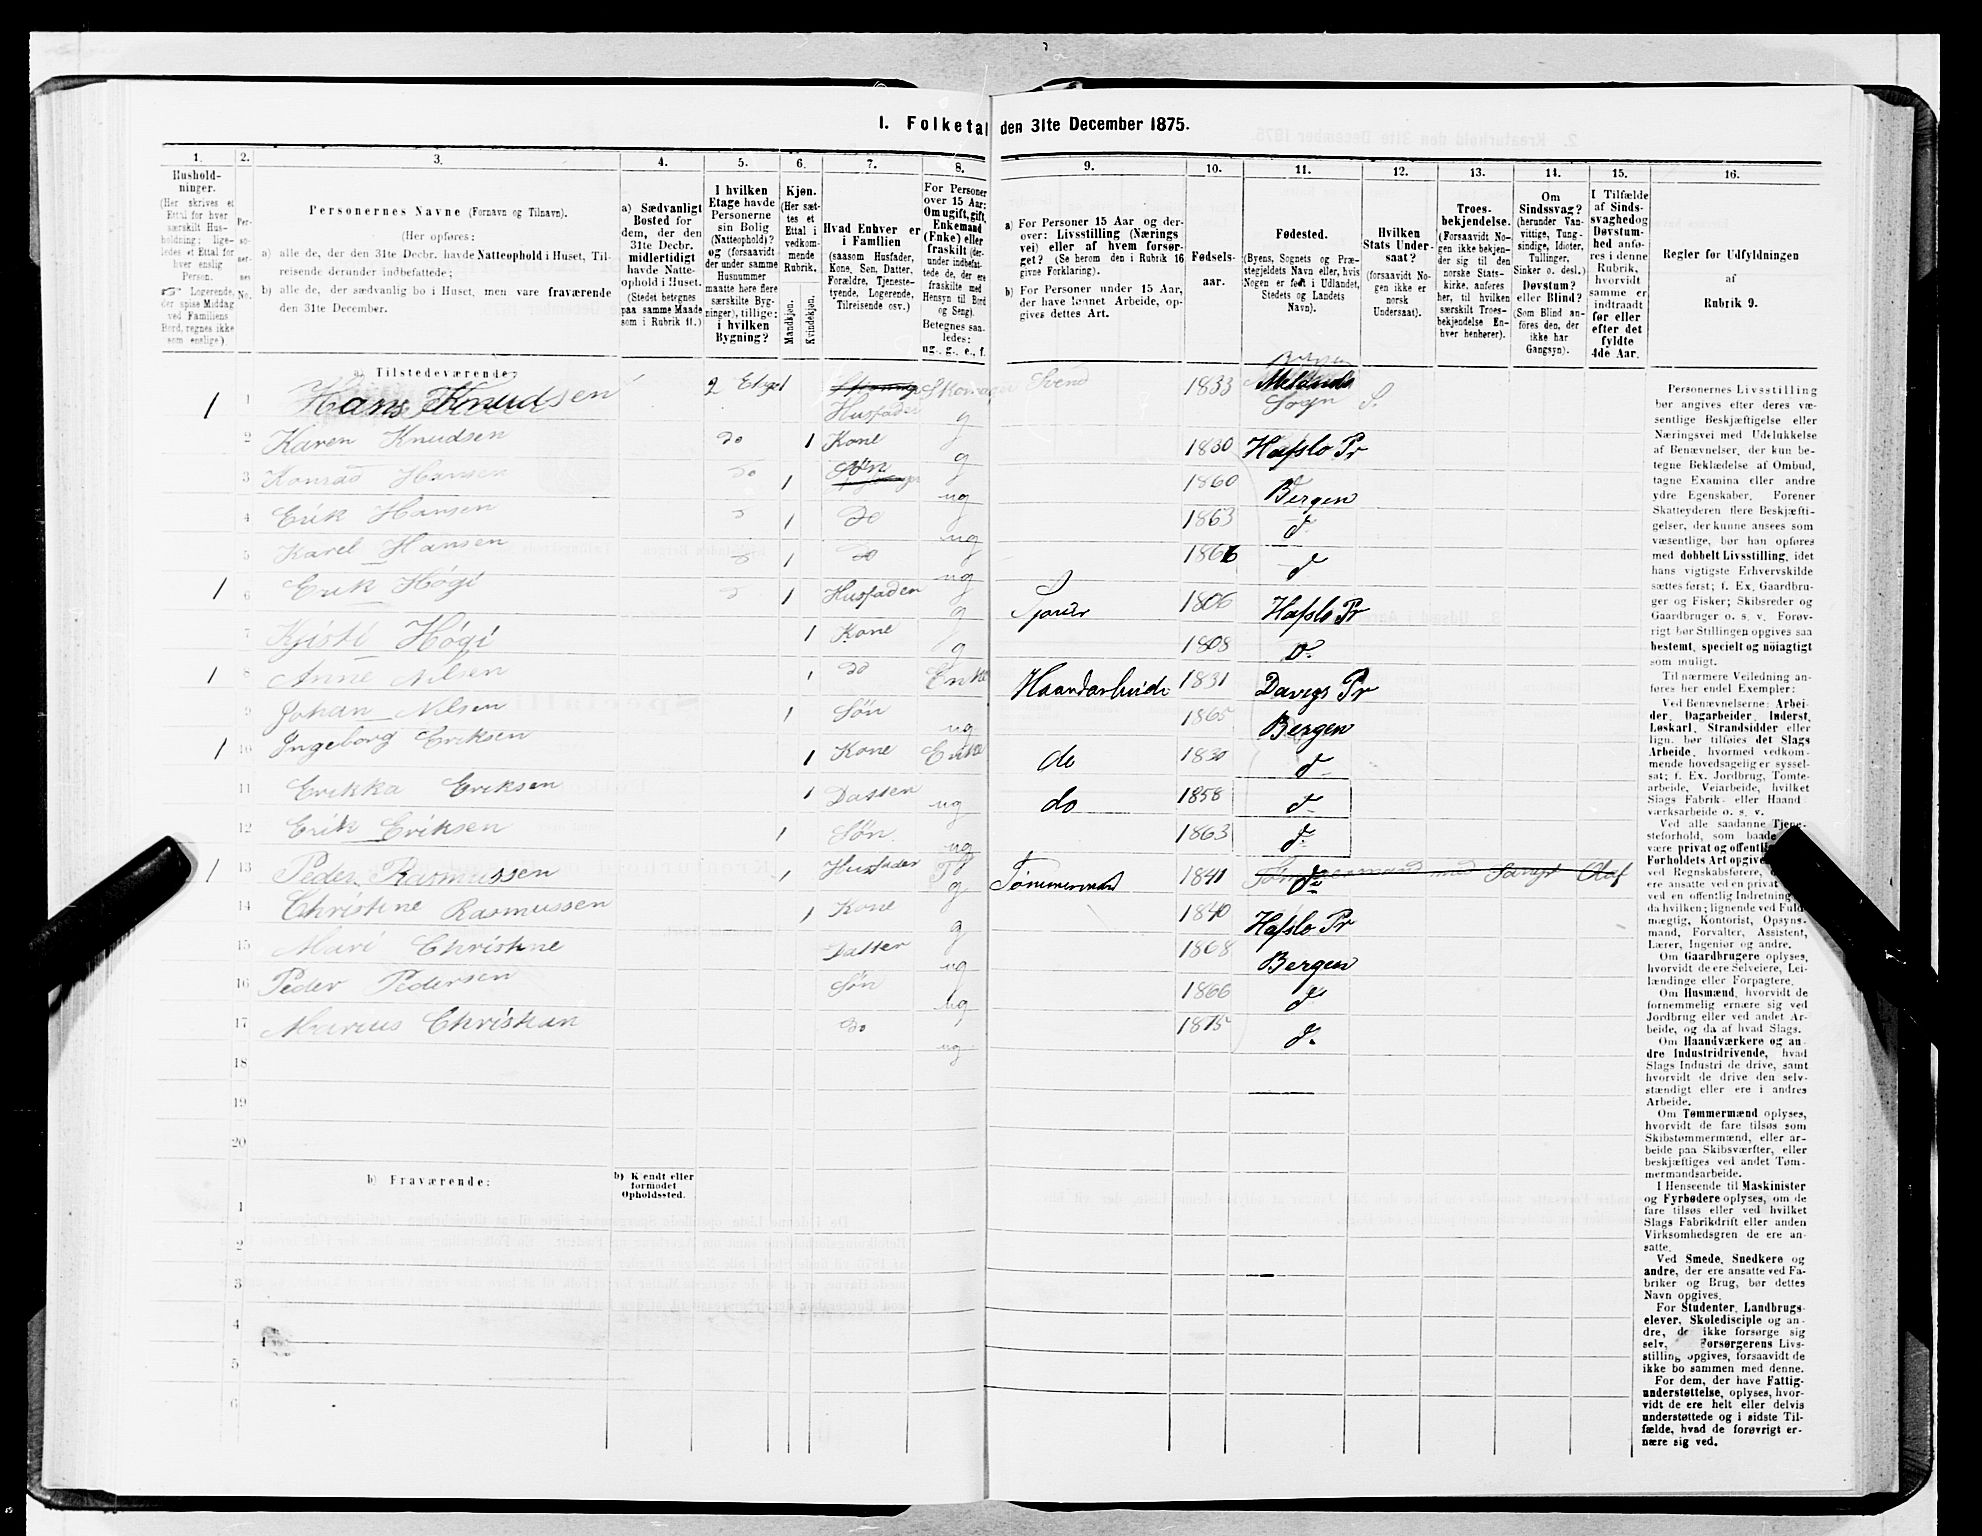 1. Folketal den 31te December 1875.
1. 2. 3. 4. 5. 6. 7. 8. 9. 10. 11. 12. 13. 14. 15. 16.
Hushold-
ninger.
(Her skrives et
Ettal for hver
særskilt Hus-
holdning; lige-
ledes et Ettal for
hver enslig
Person.
Logerende,
der spise Middag
ved Familiens
Bord, regnes ikke
som enslige).
Per-
so-
ner-
nes
No.
Personernes Navne (Fornavn og Tilnavn).
(Her opføres:
a) alle de, der den 31te Decbr. havde Natteophold i Huset, Til-
reisende derunder indbefattede;
b) alle de, der sædvanlig bo i Huset, men vare fraværende
den 31te December.
a) Sædvanligt
Bosted for
dem, der den
31te Decbr.
midlertidigt
havde Natte-
ophold i Huset.
(Stedet betegnes
paa samme Maade
som i Rubrik 11.)
I hvilken
Etage havde
Personerne
sin Bolig
(Natteophold)?
og (forsaavidt
der under samme
Husnummer
maatte høre flere
særskilte Byg-
ninger), tillige:
i hvilken
Bygning?
Kjøn.
(Her sæt-
tes et
Ettal i
vedkom-
mende
Rubrik.
Mandkjøn.
Kvindekjøn.
Hvad Enhver er
i Familien
(saasom Husfader,
Kone, Søn, Datter,
Forældre, Tjeneste-
tyende, Logerende,
Tilreisende osv.)
For Personer
over 15 Aar:
Om ugift, gift,
Enkemand
(Enke) eller
fraskilt (der-
under indbefat-
tede de, der ere
fraskilte med
Hensyn til Bord
og Seng).
Betegnes saa-
ledes:
ug., g., e., f.
a) For Personer 15 Aar og der-
over: Livsstilling (Nærings
vei) eller af hvem forsør-
get? (Se herom den i Rubrik 16
givne Forklaring).
b) For Personer under 15 Aar,
der have lønnet Arbeide, op-
gives dettes Art.
Fødsels-
aar.
Fødested.
(Byens, Sognets og Præ-
stegjeldets Navn eller, hvis
Nogen er født i Udlandet,
Stedets og Landets
Navn).
Hvilken
Stats Under-
saat?
(forsaavidt No-
gen ikke er
norsk
Undersaat).
Troes-
bekjendelse.
(Forsaavidt No-
gen ikke bekjen-
der sig til den
norske Stats-
kirke, anføres
her, til hvilken
særskilt Troes-
bekjendelse En-
hver henhører).
Om
Sindssvag?
(herunder Van-
vittige, Tung-
sindige, Idioter,
Tullinger,
Sinker o. desl.)
Døvstum?
eller Blind?
(Som Blind an-
føres den, der
ikke har
Gangsyn).
I Tilfælde
af Sinds-
svaghed og
Døvstum-
hed anfø-
res i denne
Rubrik,
hvorvidt
samme er
indtraadt
før eller
efter det
fyldte
4de Aar.
Regler før Udfyldningen
af
Rubrik 9.
a) Tilstedeværende:
1 1 Hans Knudsen 2 Etage 1 Husfader g Skomager Svend 1833 Bergen Sogn
2 Karen Knudsen do 1 Kone g 1830 Hafslo Pr
3 Konrad Hansen do 1 Søn ug 1860 Bergen
4 Erik Hansen d 1 do ug 1863 d
5 Karel Hansen d 1 do ug 1866 d
1 6 Erik Høgi d 1 Husfaden g 1806 Hafslo Pr
7 Kjisti Høgi 1 Kone g 1808 d
1 8 Anne Nilsen 1 do Enke Haandarbeide 1831 Davigs Pr
9 Johan Nilsen 1 Søn ug 1865 Bergen
1 10 Ingeborg Eriksen 1 Kone Enke do 1830 d
11 Erikka Eriksen 1 Datter ug do 1858 d
12 Erik Eriksen 1 Søn ug 1863 d
1 13 Peder Rasmussen 1 Husfader g Tømmermand 1841 d
14 Christine Rasmussen 1 Kone g 1840 Hafslo Pr
15 Mari Christine Datter ug 1868 Bergen
16 Peder Pedersen Søn ug 1866 d
17 Marius Christian do ug 1875 d
18
19
20
b) Fraværende:
b) Kjendt eller
formodet
Opholdssted.
1
2
3
4
5
6
Personernes Livsstilling
bør angives efter deres væ-
sentlige Beskjæftigelse eller
Næringsvei med Udelukkelse
af Benævnelser, der kun be-
tegne Beklædelse af Ombud,
tagne Examina eller andre
ydre Egenskaber. Forener
Skatteyderen flere Beskjæfti-
gelser, der kunne ansees som
væsentlige, bør han opføres
med dobbelt Livsstilling, idet
hans vigtigste Erhvervskilde
sættes først; f. Ex. Gaardbru-
ger og Fisker; Skibsreder og
Gaardbruger o. s. v. Forøv-
rigt bør Stillingen opgives saa
bestemt, specielt og nöiagtigt
som muligt.
Til nærmere Veiledning an-
føres her endel Exempler:
Ved Benævnelserne: Arbei-
der, Dagarbeider, Inderst,
Løskarl, Strandsidder eller
lign. bør tilføies det Slags
Arbeide, hvormed vedkom-
mende hovedsagelig er syssel-
sat; f. Ex. Jordbrug, Tomte-
arbeide, Veiarbeide, hvilket
Slags Fabrik- eller Haand-
værksarbeide o. s. v.
Ved alle saadanne Tjene-
steforhold, som baade
være privat og offentlig
Forholdets Art opgives
ved Regnskabsførere,
ere ansatte ved en privat
ved en offentlig Indretning
da hvilken; lignende ved Fuld-
mægtig, Kontorist, Opsyns-
mand, Forvalter, Assistent,
Lærer, Ingeniør og andre.
Om Gaardbrugere oplyses,
hvorvidt de ere Selveiere, Lei-
lændinge eller Forpagtere.
Om Husmænd, hvorvidt de
fornemmelig ernære sig ved
Jordbrug eller ved andet Ar-
beide, og da af hvad Slags.
Om Haandværkere og an-
dre Industridrivende, hvad
Slags Industri de drive, samt
hvorvidt de drive den selv-
stændigt eller ere i andres
Arbeide.
Om Tømmermænd oplyses,
hvorvidt de fare tilsøs som
Skibstømmermænd, eller ar-
beide paa Skibsværfter, eller
beskjæftiges ved andet Tøm-
mermandsarbeide.
I Henseende til Maskinister
og Fyrbødere oplyses, om de
fare tilsøs eller ved hvilket
Slags Fabrikdrift eller anden
Virksomhedsgren de ere an-
satte.
Ved Smede, Snedkere og
andre, der ere ansatte ved Fa-
briker og Brug, bør dettes
Navn opgives.
For Studenter, Landbrugs-
elever, Skoledisciple og an-
dre, der ikke forsørge sig
selv, Forsørgerens Livs-
stilling opgives, forsaavidt de
ikke bo sammen med denne.
For dem, der have Fattig-
understøttelse, oplyses, hvor-
vidt de ere helt eller delvis
understøttede og i sidste Til-
fælde, hvad de forøvrigt er-
nære sig ved.